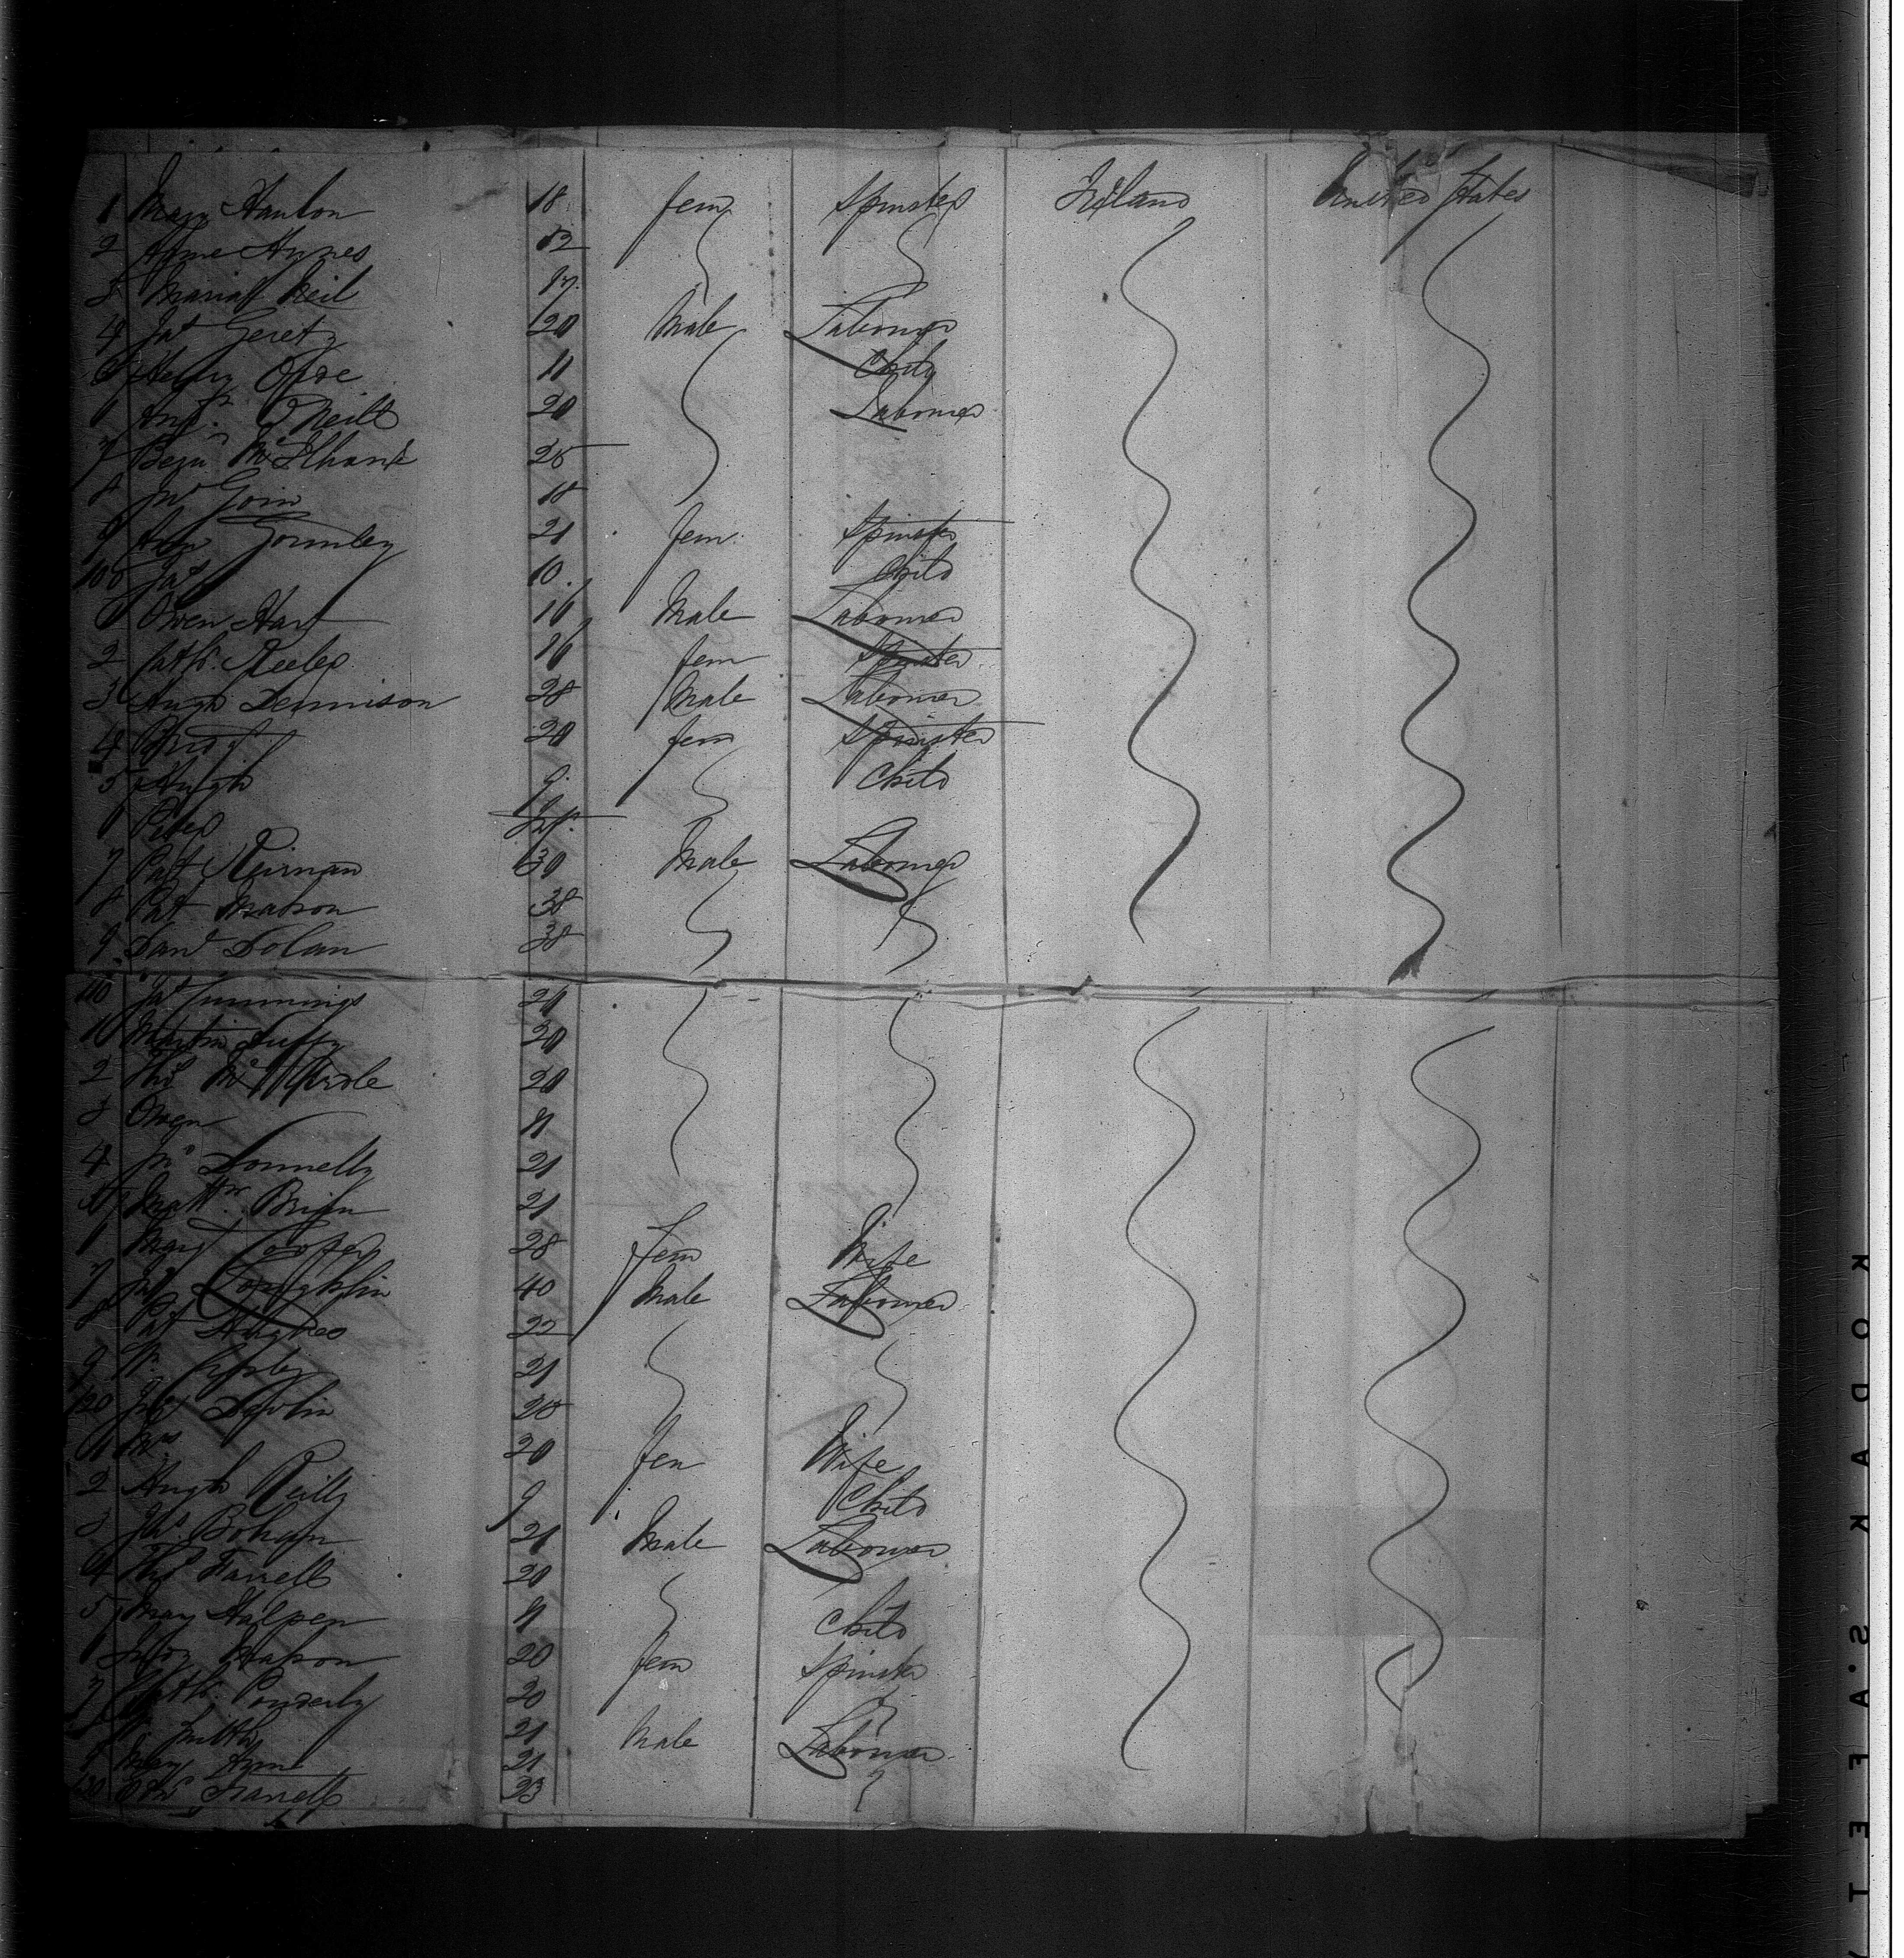 1 Mary Hanlon 18 fem Spinster Ireland United States
2 Anne Hynes 12
3 Maria Neil 17
4 Jas Gerety 20 Male Labourer
5 Henry 11 Child
6 O'Neill 20 Labourer
7 Benj 25
8 Jno 18
9 Ann Gormley 21 fem Spinster
100 Jas 10 Child
1 Owen Hart 16 Male Labourer
2 Cath. Keeler 16 fem Spinster
3 Hugh Dennison 28 Male Labourer
4 Bridt 20 fem Spinster
5 Hugh 9 Child
6 Peter
7 Pat Kiernan 30 Male Labourer
8 Pat Mahon 38
9 Danl Dolan 38
110 Jas Cummings 20
1 Martin Duffy 20
2 Thos McArdle 20
3 Owen 11
4 Jno Donnelly 21
5 Mattw Brien 21
6 Mary Cooper 28 Fem Wife
7 Jno Loughlin 40 Male Labourer
8 Pat Hughes 22
9 Wm 21
120 Devlin 20
1 Mrs 20 fem Wife
2 Hugh Reilly 9 Child
3 Thos Bohan 21 Male Labourer
4 Thos Farrell 20
5 Mary Halpen 11 Child
6 Mahon 20 fem Spinster
7 Cath. Ponderly 20
8 Smith 21 Male Labourer
9 Mary 21
130 Farrell 23
KODAK S.AFETY